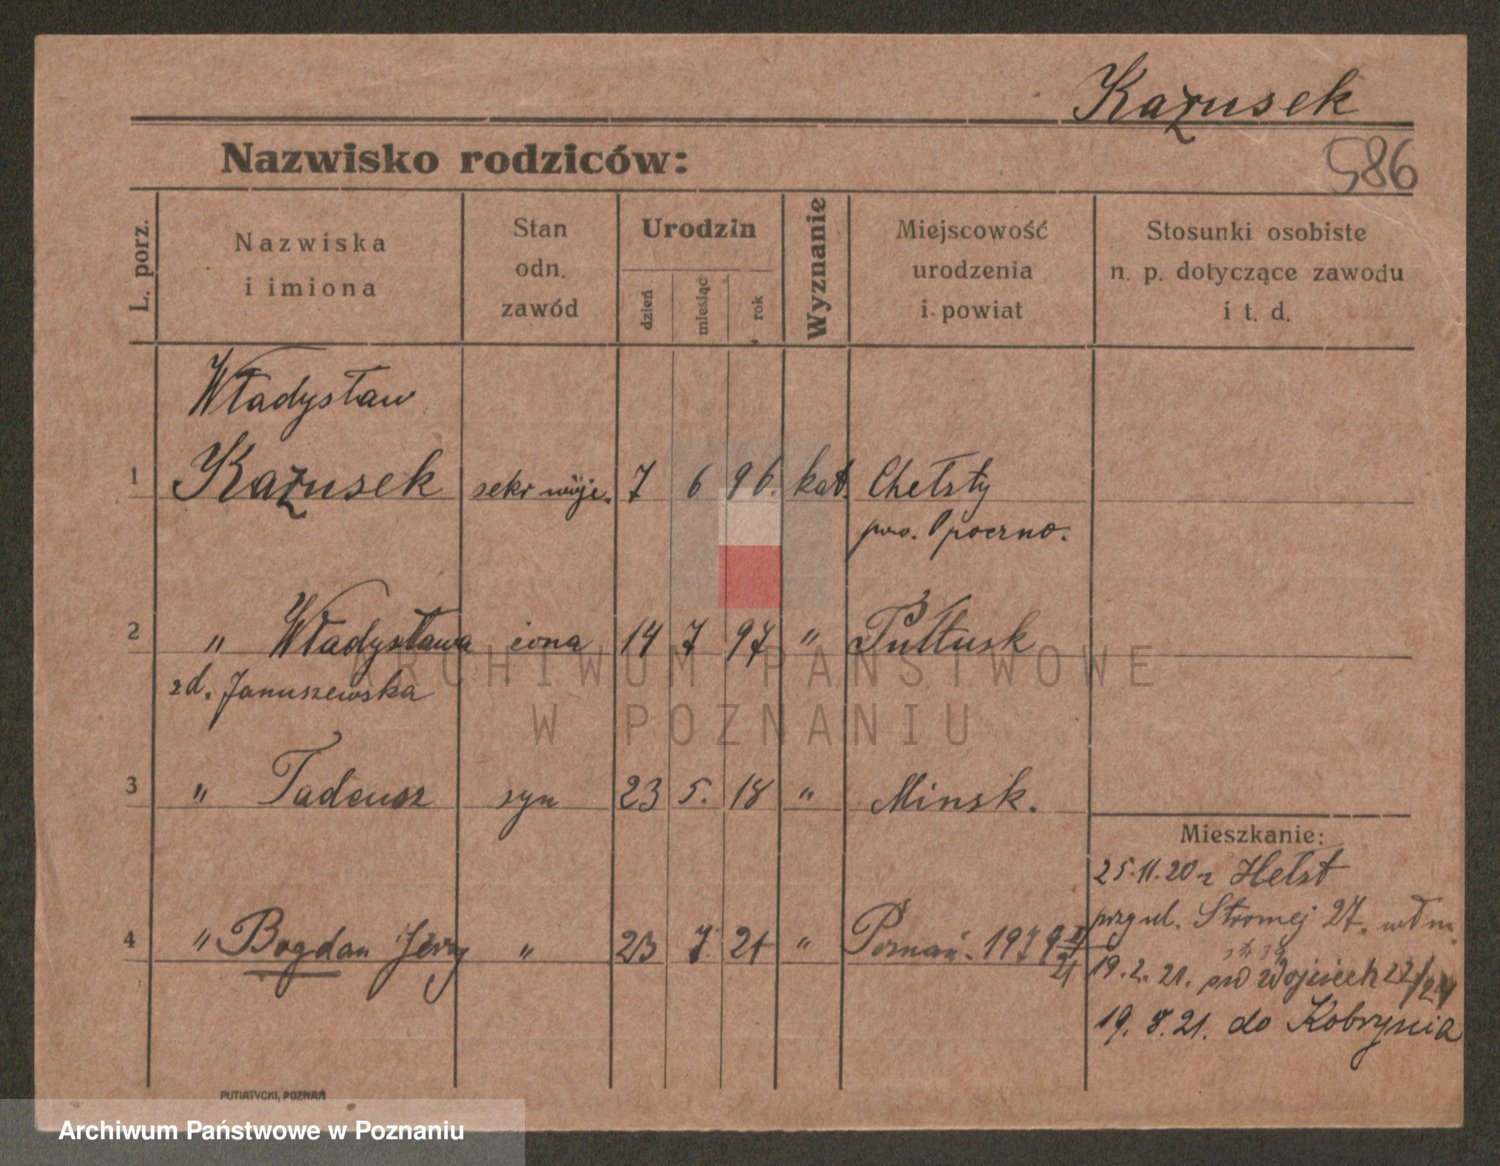 Kazusek
586
Nazwisko rodziców:
L. porz.
Nazwiska
i imiona
Stan
odn.
zawód
Urodzin
dzień
miesiąc
rok
Wyznanie
Miejscowość
urodzenia
i powiat
Stosunki osobiste
n. p. dotyczące zawodu
i t. d.
Władysław
1 Kazusek sekr woje. 7 6 96. kat. Chełsty
pow. Opoczno.
2 " Władysława żona 14 7 97 " Pułtusk
zd. Januszewska
3 " Tadeusz syn 23 5. 18 " Minsk.
Mieszkanie:
25.11.20 z Hełst
przy ul. Stromej 27.
4 " Bogdan Jerzy " 23 7 21 " Poznań. 1979
19.2.21. Wojciech 22/24
19.8.21. do Kobrynia
PUTIATYCKI, POZNAŃ
ARCHIWUM PAŃSTWOWE
W POZNANIU
Archiwum Państwowe w Poznaniu